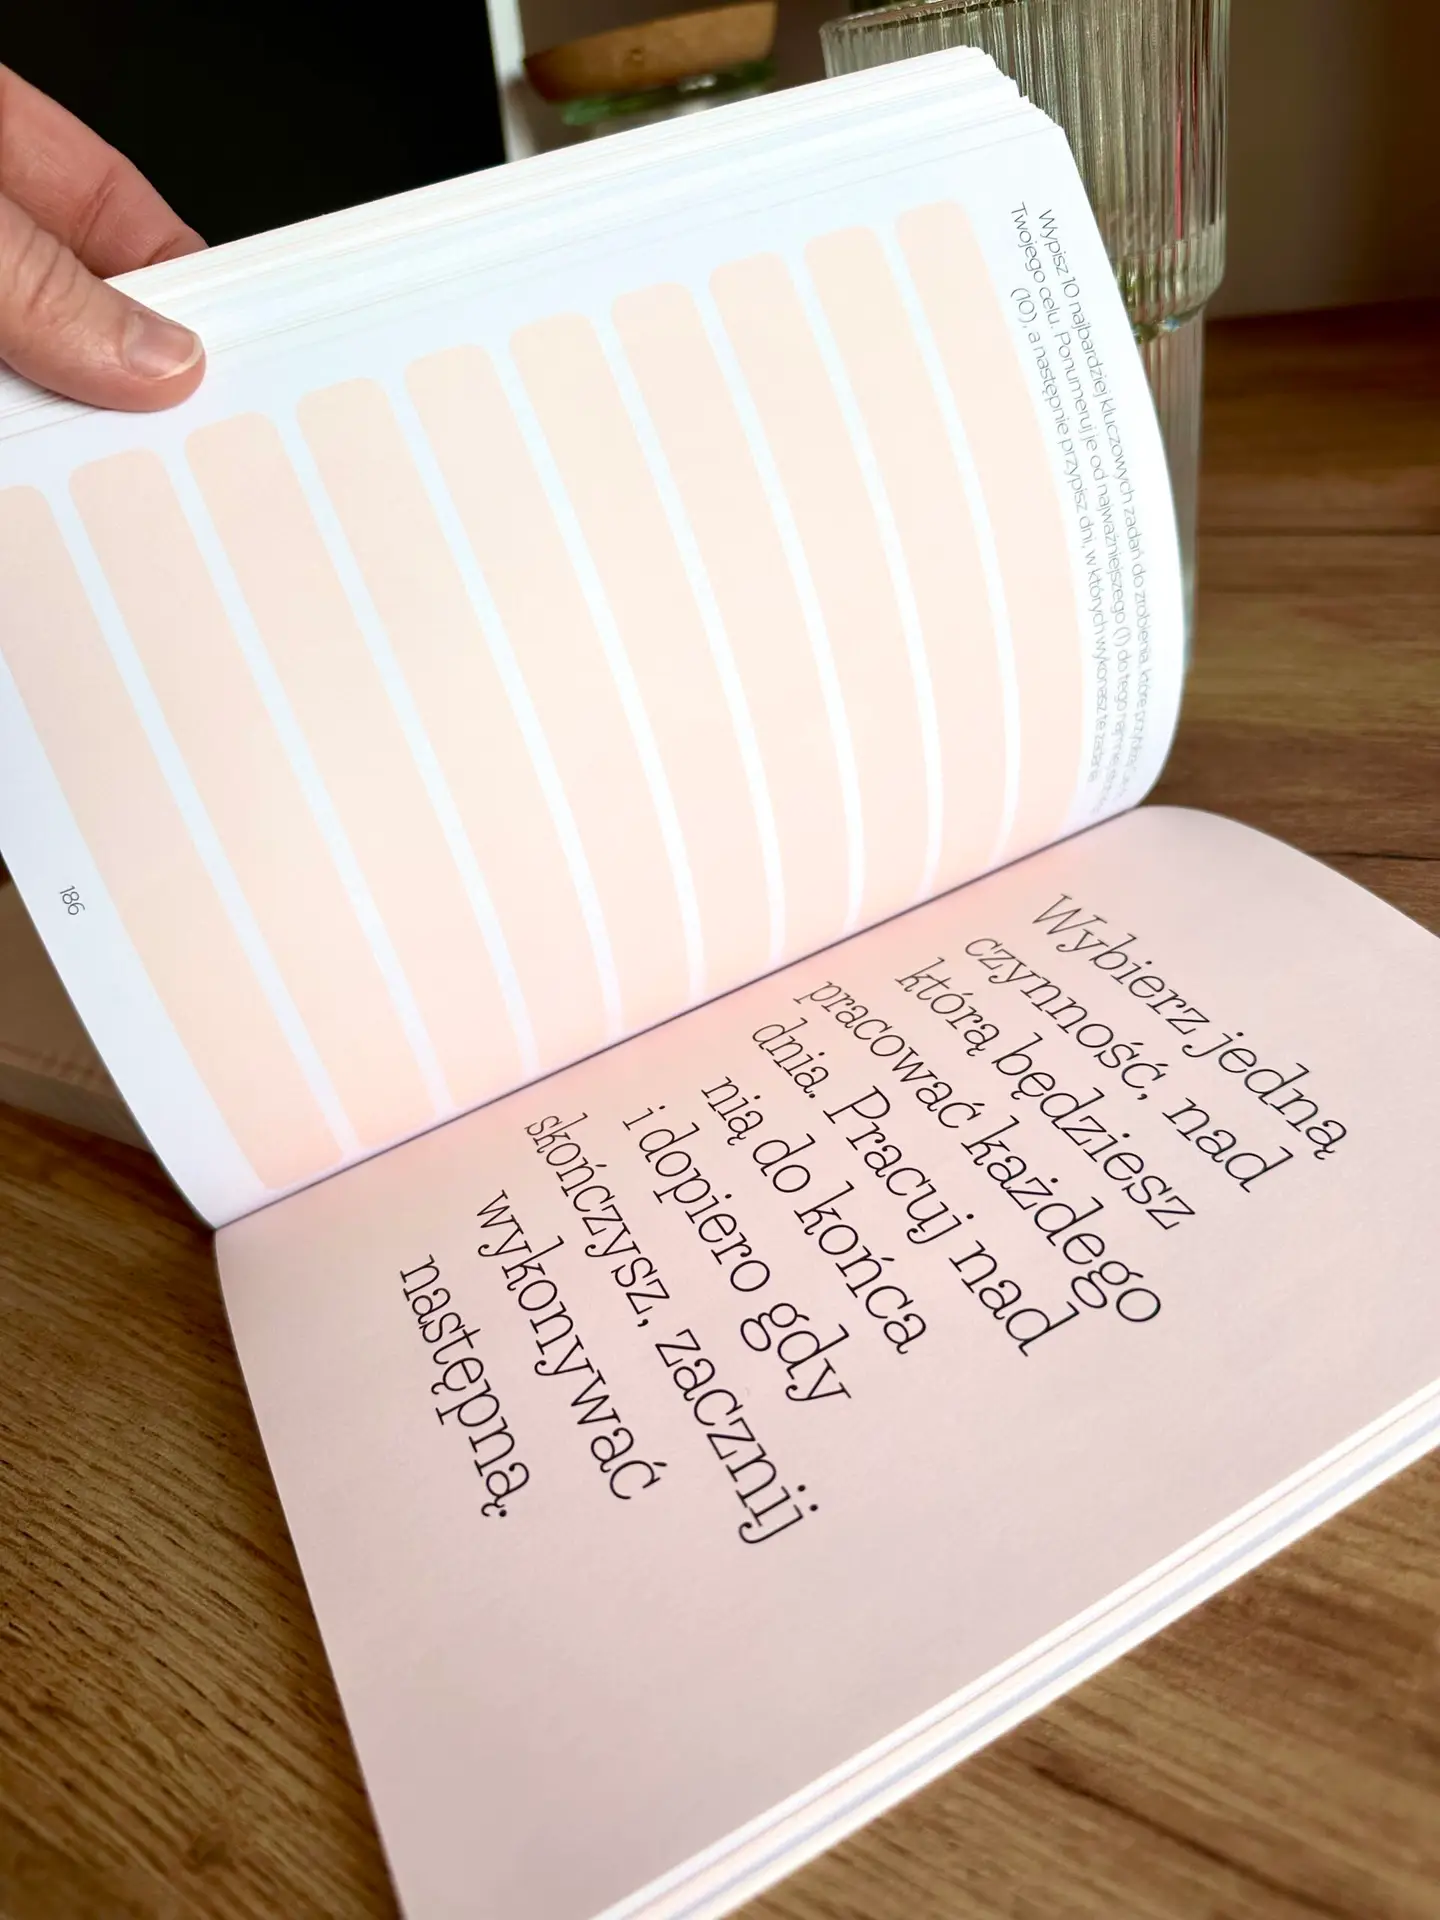 Wypisz 10 najbardziej kluczowych zadań do zrobienia, które
Twojego celu. Ponumeruj je od najważniejszego (1) do tego
(10), a następnie przypisz dni, w których wykonasz te zadania.
186
Wybierz jedną
czynność, nad
którą będziesz
pracować każdego
dnia. Pracuj nad
nią do końca
i dopiero gdy
skończysz, zacznij
wykonywać
następną.